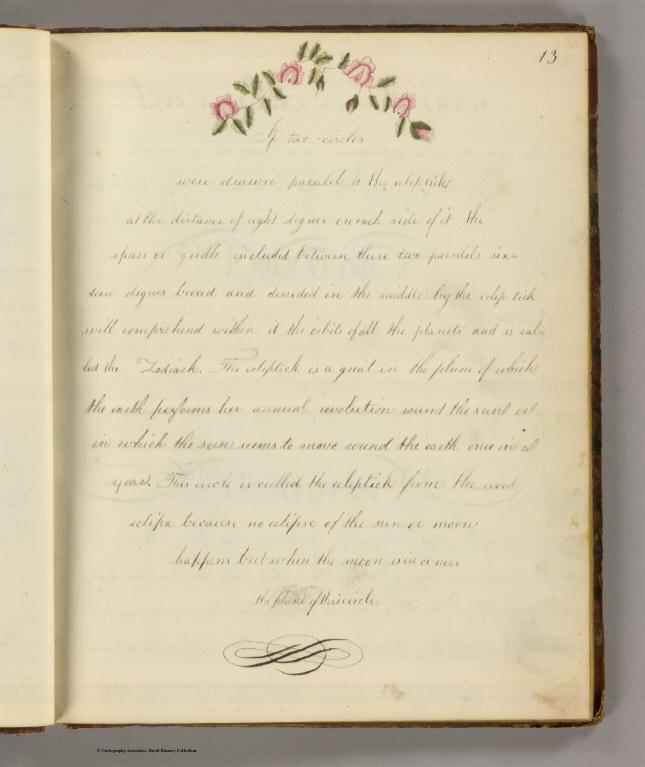 13
If two circles
were drawn parallel to the ecliptick
at the distance of eight degrees on each side of it the
space or girdle included between these two parallels six=
teen degrees broad and devided in the middle by the eclip tick
will comprehend within it the orbits of all the planets and is cal
led the Zodiack. The ecliptick is a great in the plane of which
the earth performs her annual revolution round the sun or
in which the sun seems to move round the earth once in a
year. This circle is called the ecliptick from the word
eclipse because no eclipse of the sun or moon
happens but when the moon is in or near
the plane of this circle
© Cartography Associates, David Rumsey Collection